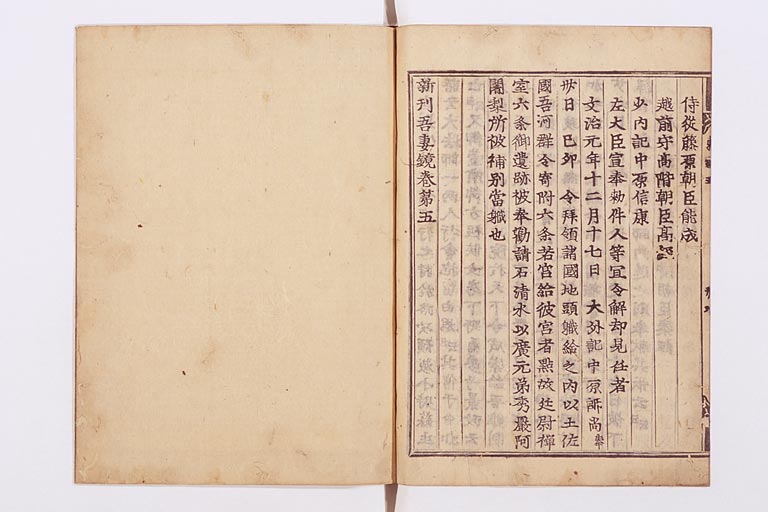 侍從藤原朝臣能成
越前守高階朝臣高經
少内記中原信康
左大臣宣奉勅件人等宜令解却見任者
文治元年十二月十七日 大外記中原師尚奉
卅日己卯 令拜領諸國地頭軄給之内以土佐
國吾河群令寄附六条若宮給彼宮者點故廷尉禅
室六条御遺跡被奉勸請石清水以廣元弟秀嚴阿
闍梨所被補别當軄也
新刊吾妻鏡巻第五